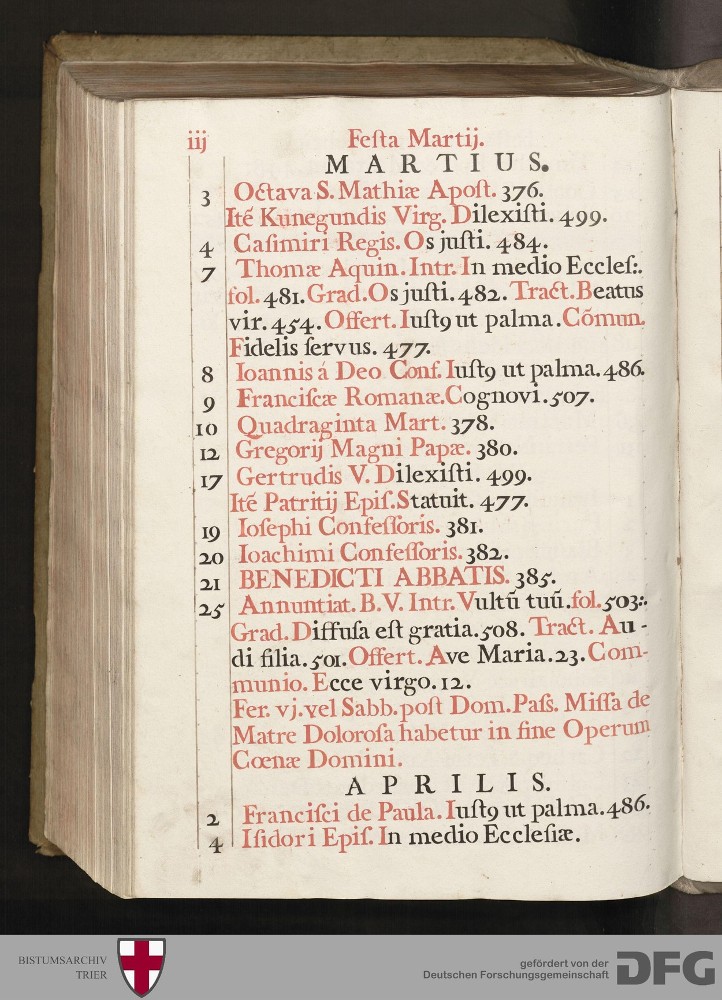 iij Feſta Martij.
MARTIUS.
3 Octava S. Mathiæ Apoſt. 376.
Itē Kunegundis Virg. Dilexiſti. 499.
4 Caſimiri Regis. Os juſti. 484.
7 Thomæ Aquin. Intr. In medio Eccleſ:.
fol. 481. Grad. Os juſti. 482. Tract. Beatus
vir. 454. Offert. Iuſt9 ut palma. Cōmun.
Fidelis ſervus. 477.
8 Ioannis á Deo Conf. Iuſt9 ut palma. 486.
9 Franciſcæ Romanæ. Cognovi. 507.
10 Quadraginta Mart. 378.
12 Gregorij Magni Papæ. 380.
17 Gertrudis V. Dilexiſti. 499.
Itē Patritij Epiſ. Statuit. 477.
19 Ioſephi Confeſſoris. 381.
20 Ioachimi Confeſſoris. 382.
21 BENEDICTI ABBATIS. 385.
25 Annuntiat. B. V. Intr. Vultū tuū. fol. 503:.
Grad. Diffuſa eſt gratia. 508. Tract. Au-
di filia. 501. Offert. Ave Maria. 23. Com-
munio. Ecce virgo. 12.
Fer. vj. vel Sabb. poſt Dom. Paſs. Miſſa de
Matre Doloroſa habetur in fine Operum
Cœnæ Domini.
APRILIS.
2 Franciſci de Paula. Iuſt9 ut palma. 486.
4 Iſidori Epiſ. In medio Eccleſiæ.
BISTUMSARCHIV
TRIER
gefördert von der
Deutschen Forschungsgemeinschaft
DFG